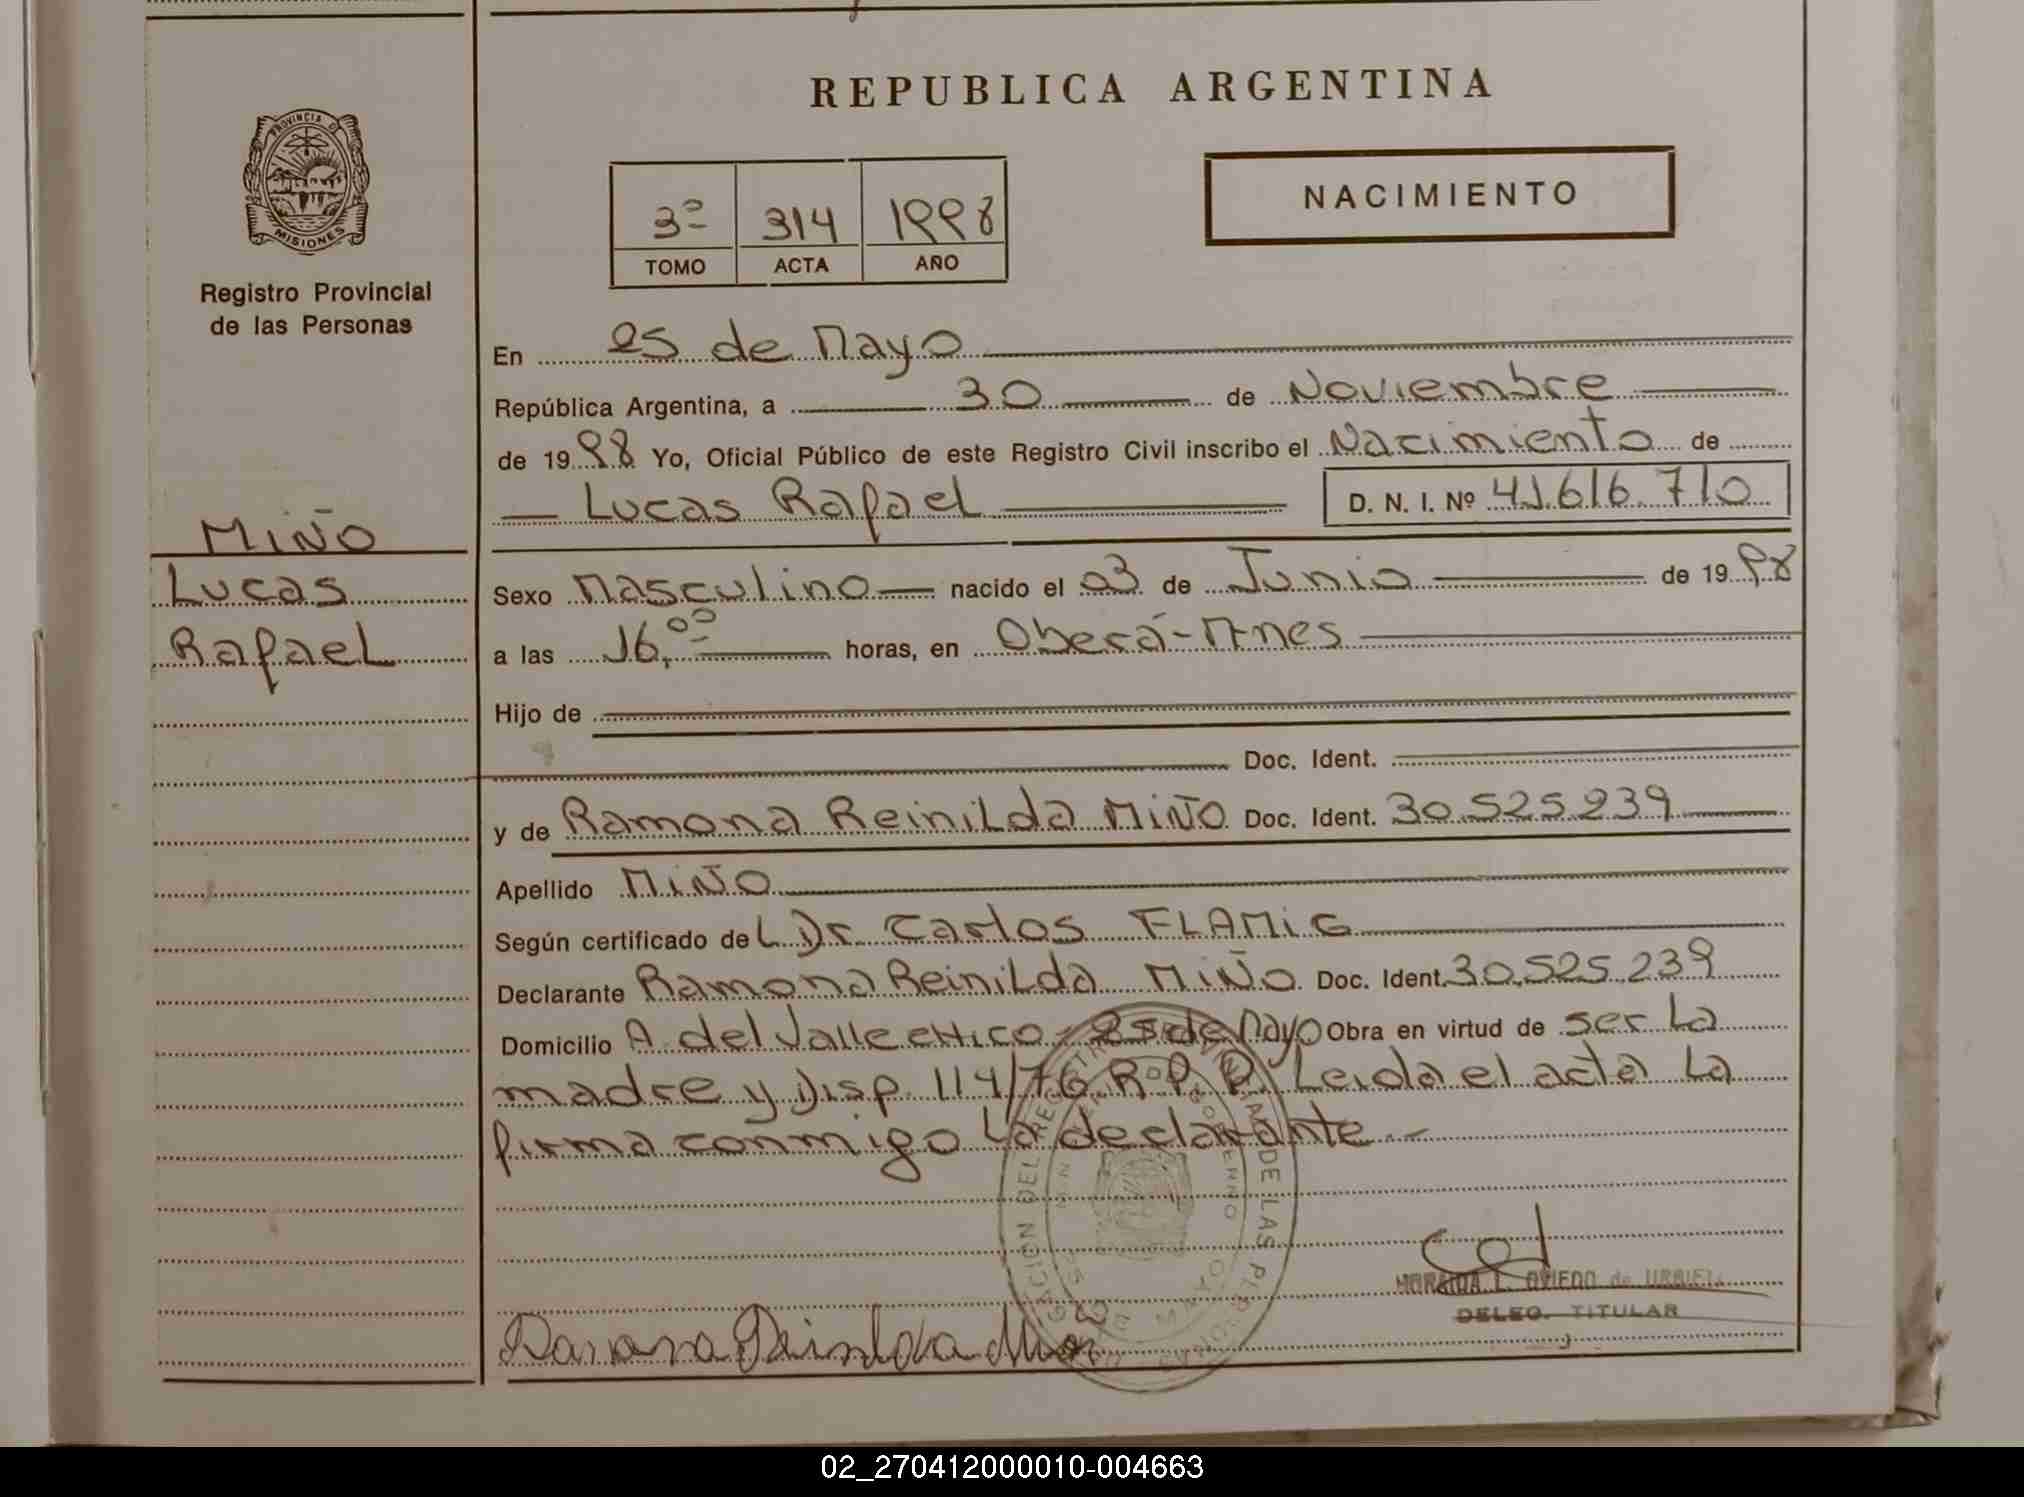 REPUBLICA ARGENTINA
PROVINCIA DE
MISIONES
Registro Provincial
de las Personas
3º 314 1998
TOMO ACTA AÑO
NACIMIENTO
En 25 de Mayo
República Argentina, a 30 de Noviembre
de 1998 Yo, Oficial Público de este Registro Civil inscribo el Nacimiento de
Lucas Rafael D. N. I. Nº 41.616.710
MIÑO
Lucas
Rafael
Sexo Masculino nacido el 03 de Junio de 1998
a las 16,00 horas, en Oberá-Mnes
Hijo de
Doc. Ident.
y de Ramona Reinilda MIÑO Doc. Ident. 30.525.239
Apellido MIÑO
Según certificado del Dr. Carlos FLAMIG
Declarante Ramona Reinilda MIÑO Doc. Ident. 30.525.239
Domicilio A. del Valle chico - 25 de Mayo Obra en virtud de ser la
madre y Disp. 114/76 R.P.P. Leida el acta la
firma conmigo la declarante.-
OVIEDO de
DELEG. TITULAR
Ramona Reinilda Miño
02_270412000010-004663